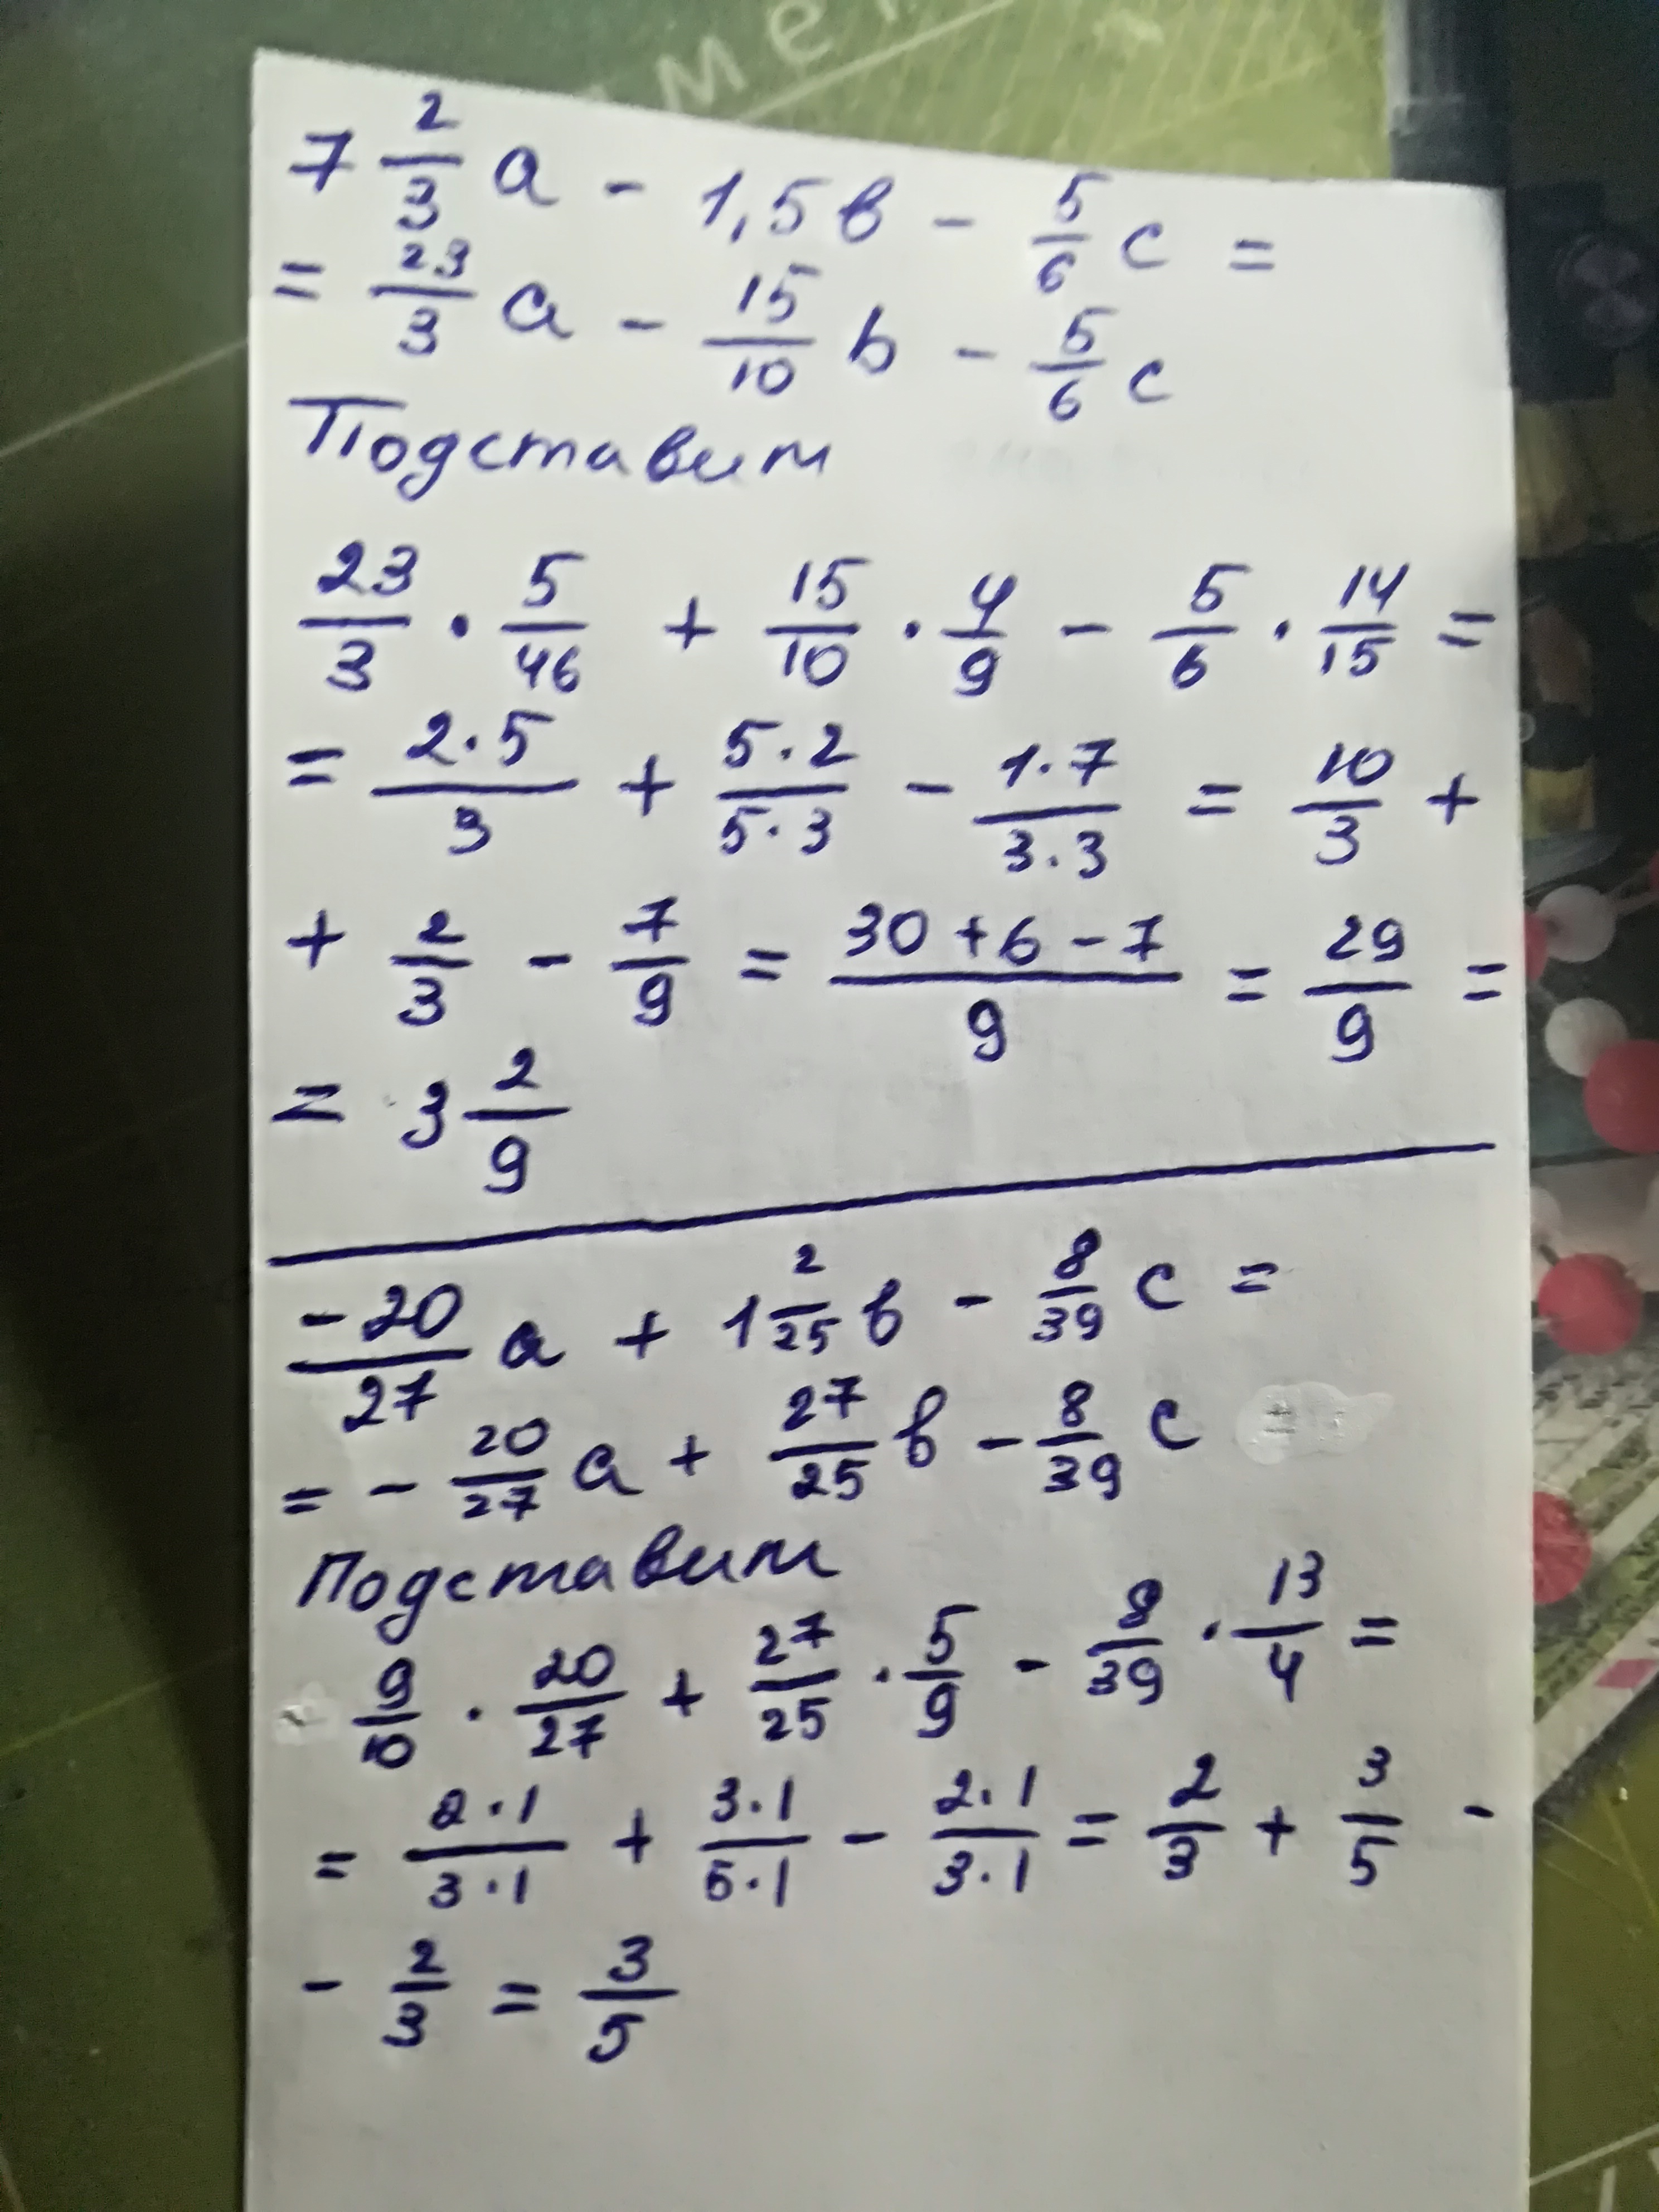 мен
7 2/3 a - 1,5 в - 5/6 c =
= 23/3 a - 15/10 b - 5/6 c
Подставим
23/3 · 5/46 + 15/10 · 4/9 - 5/6 · 14/15 =
= 2·5/3 + 5·2/5·3 - 1·7/3·3 = 10/3 +
+ 2/3 - 7/9 = 30+6-7/9 = 29/9 =
= 3 2/9
-20/27 a + 1 2/25 в - 8/39 c =
= - 20/27 a + 27/25 в - 8/39 c
Подставим
9/10 · 20/27 + 27/25 · 5/9 - 8/39 · 13/4 =
= 2·1/3·1 + 3·1/5·1 - 2·1/3·1 = 2/3 + 3/5 -
- 2/3 = 3/5